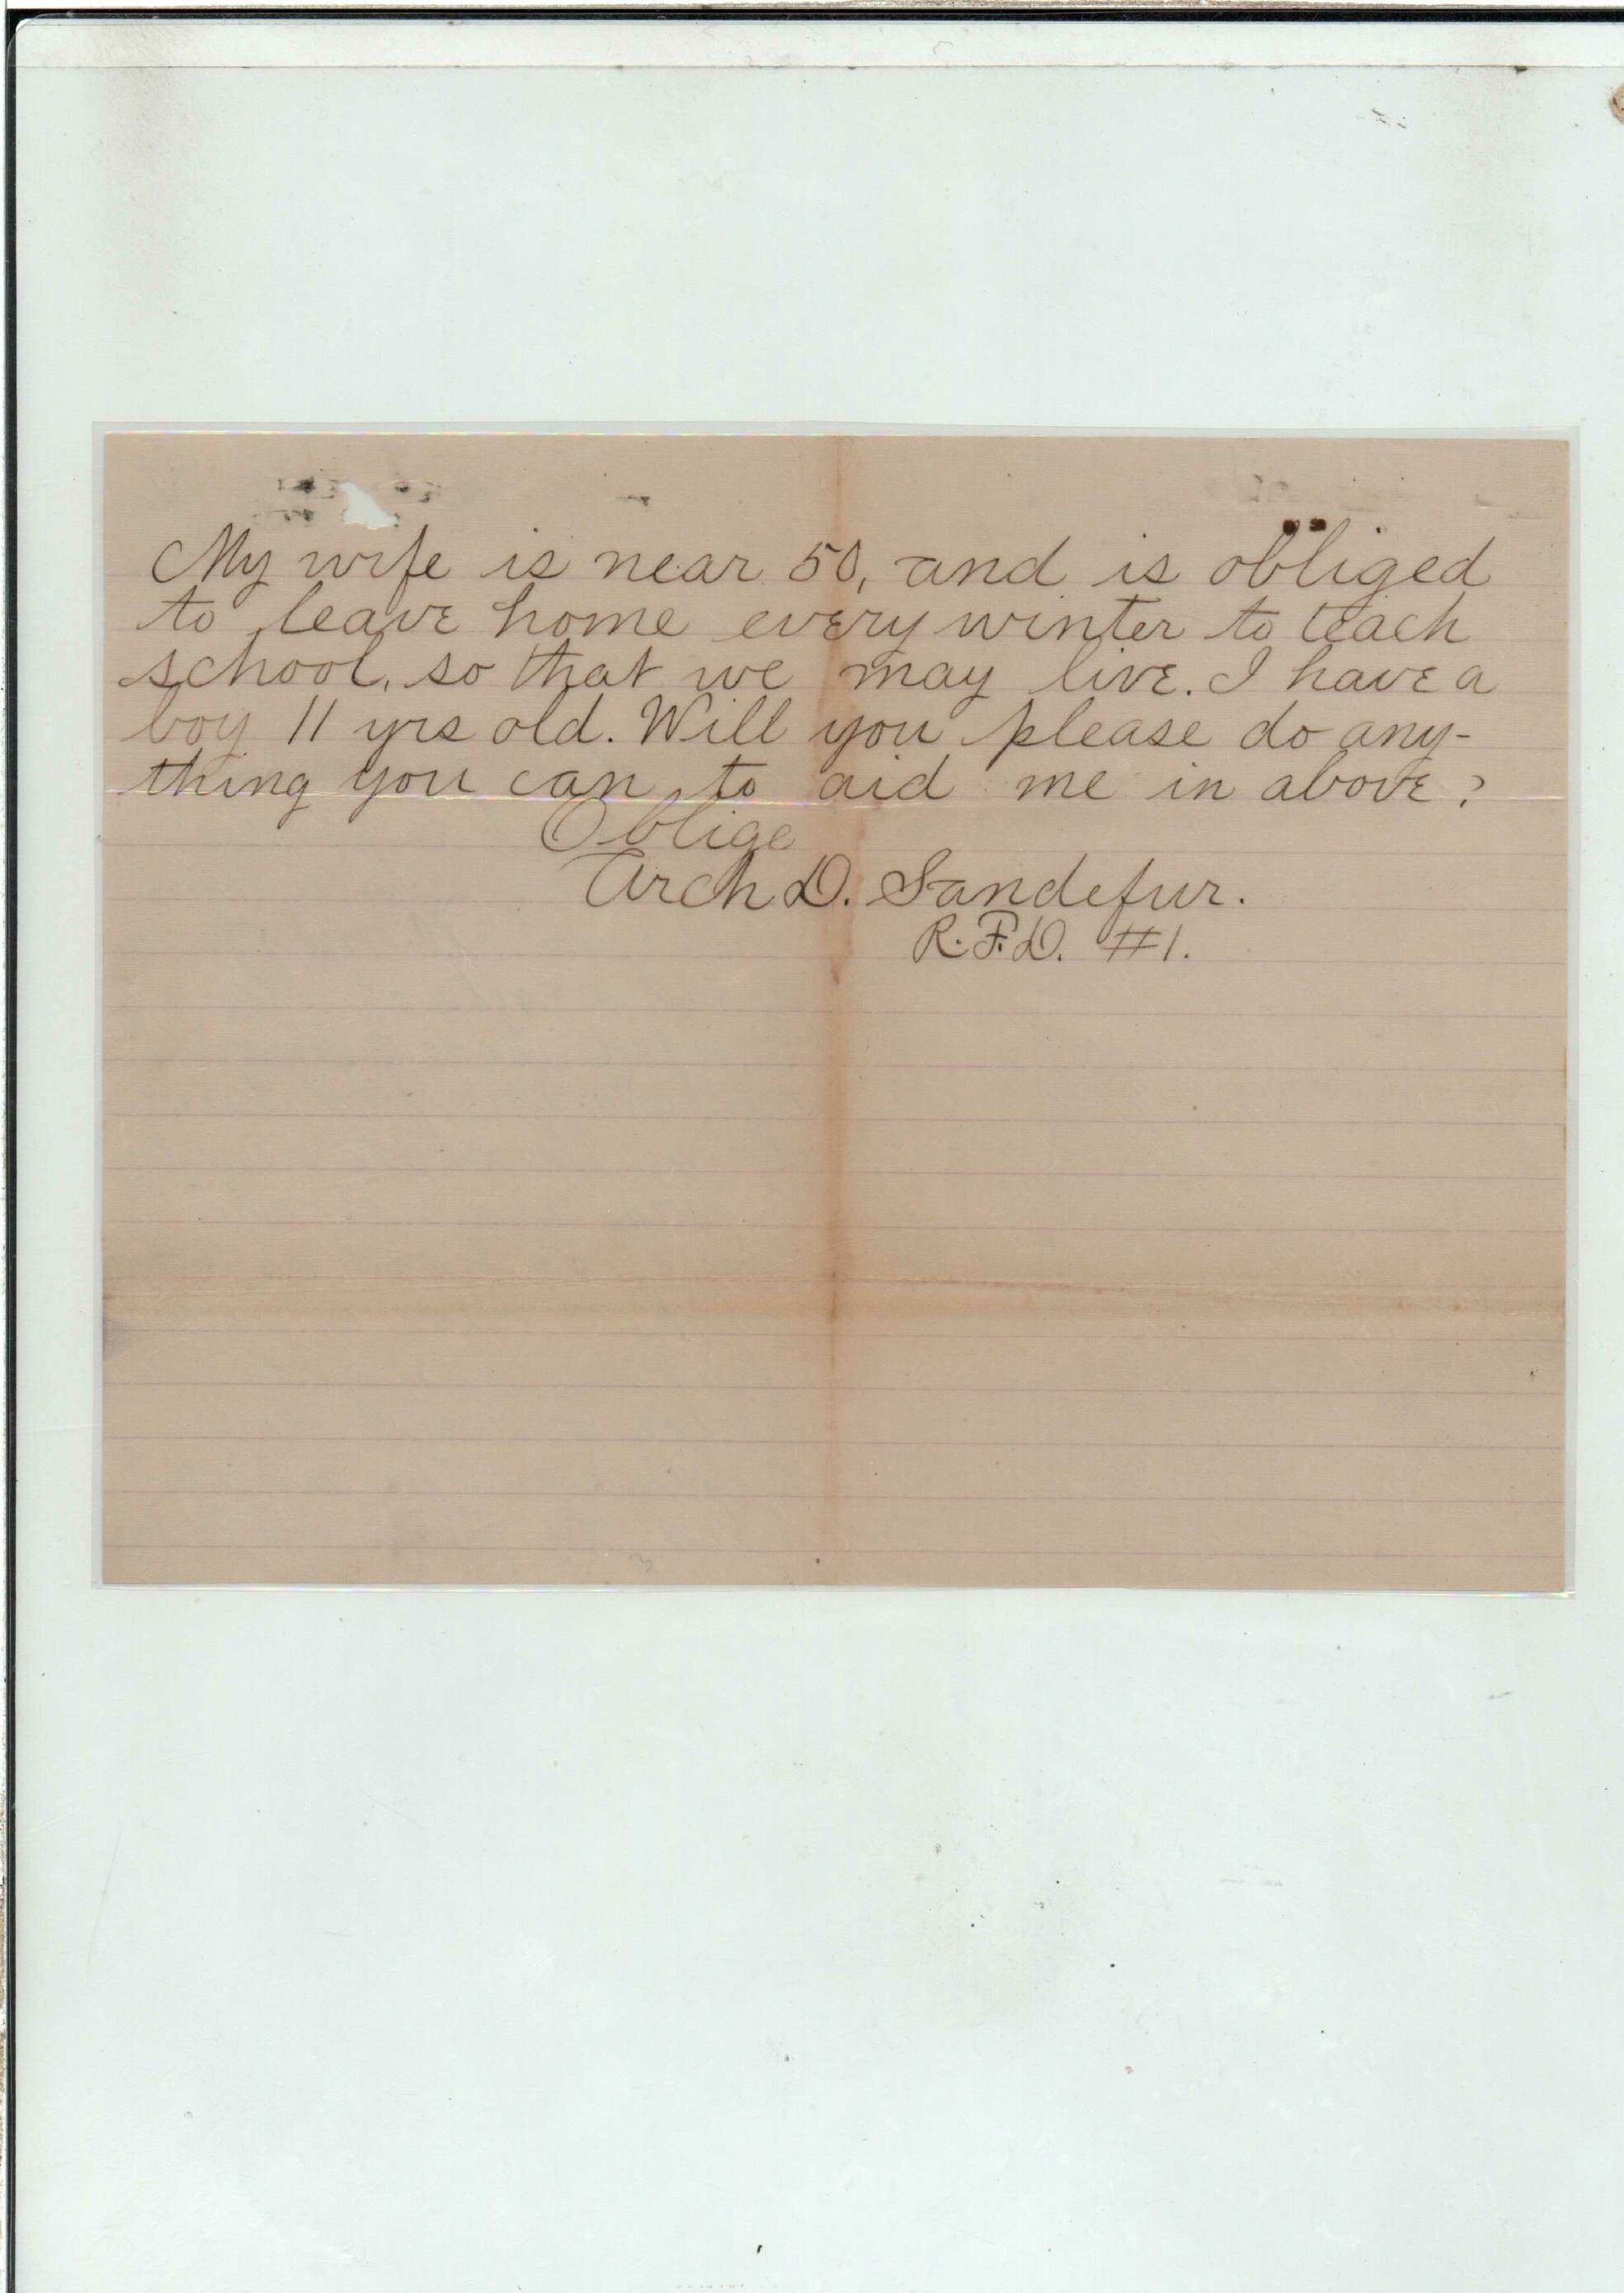 My wife is near 50, and is obliged
to leave home every winter to teach
school, so that we may live. I have a
boy 11 yrs old. Will you please do any-
thing you can to aid me in above?
Oblige
Arch D. Sandefur.
R.F.D. #1.